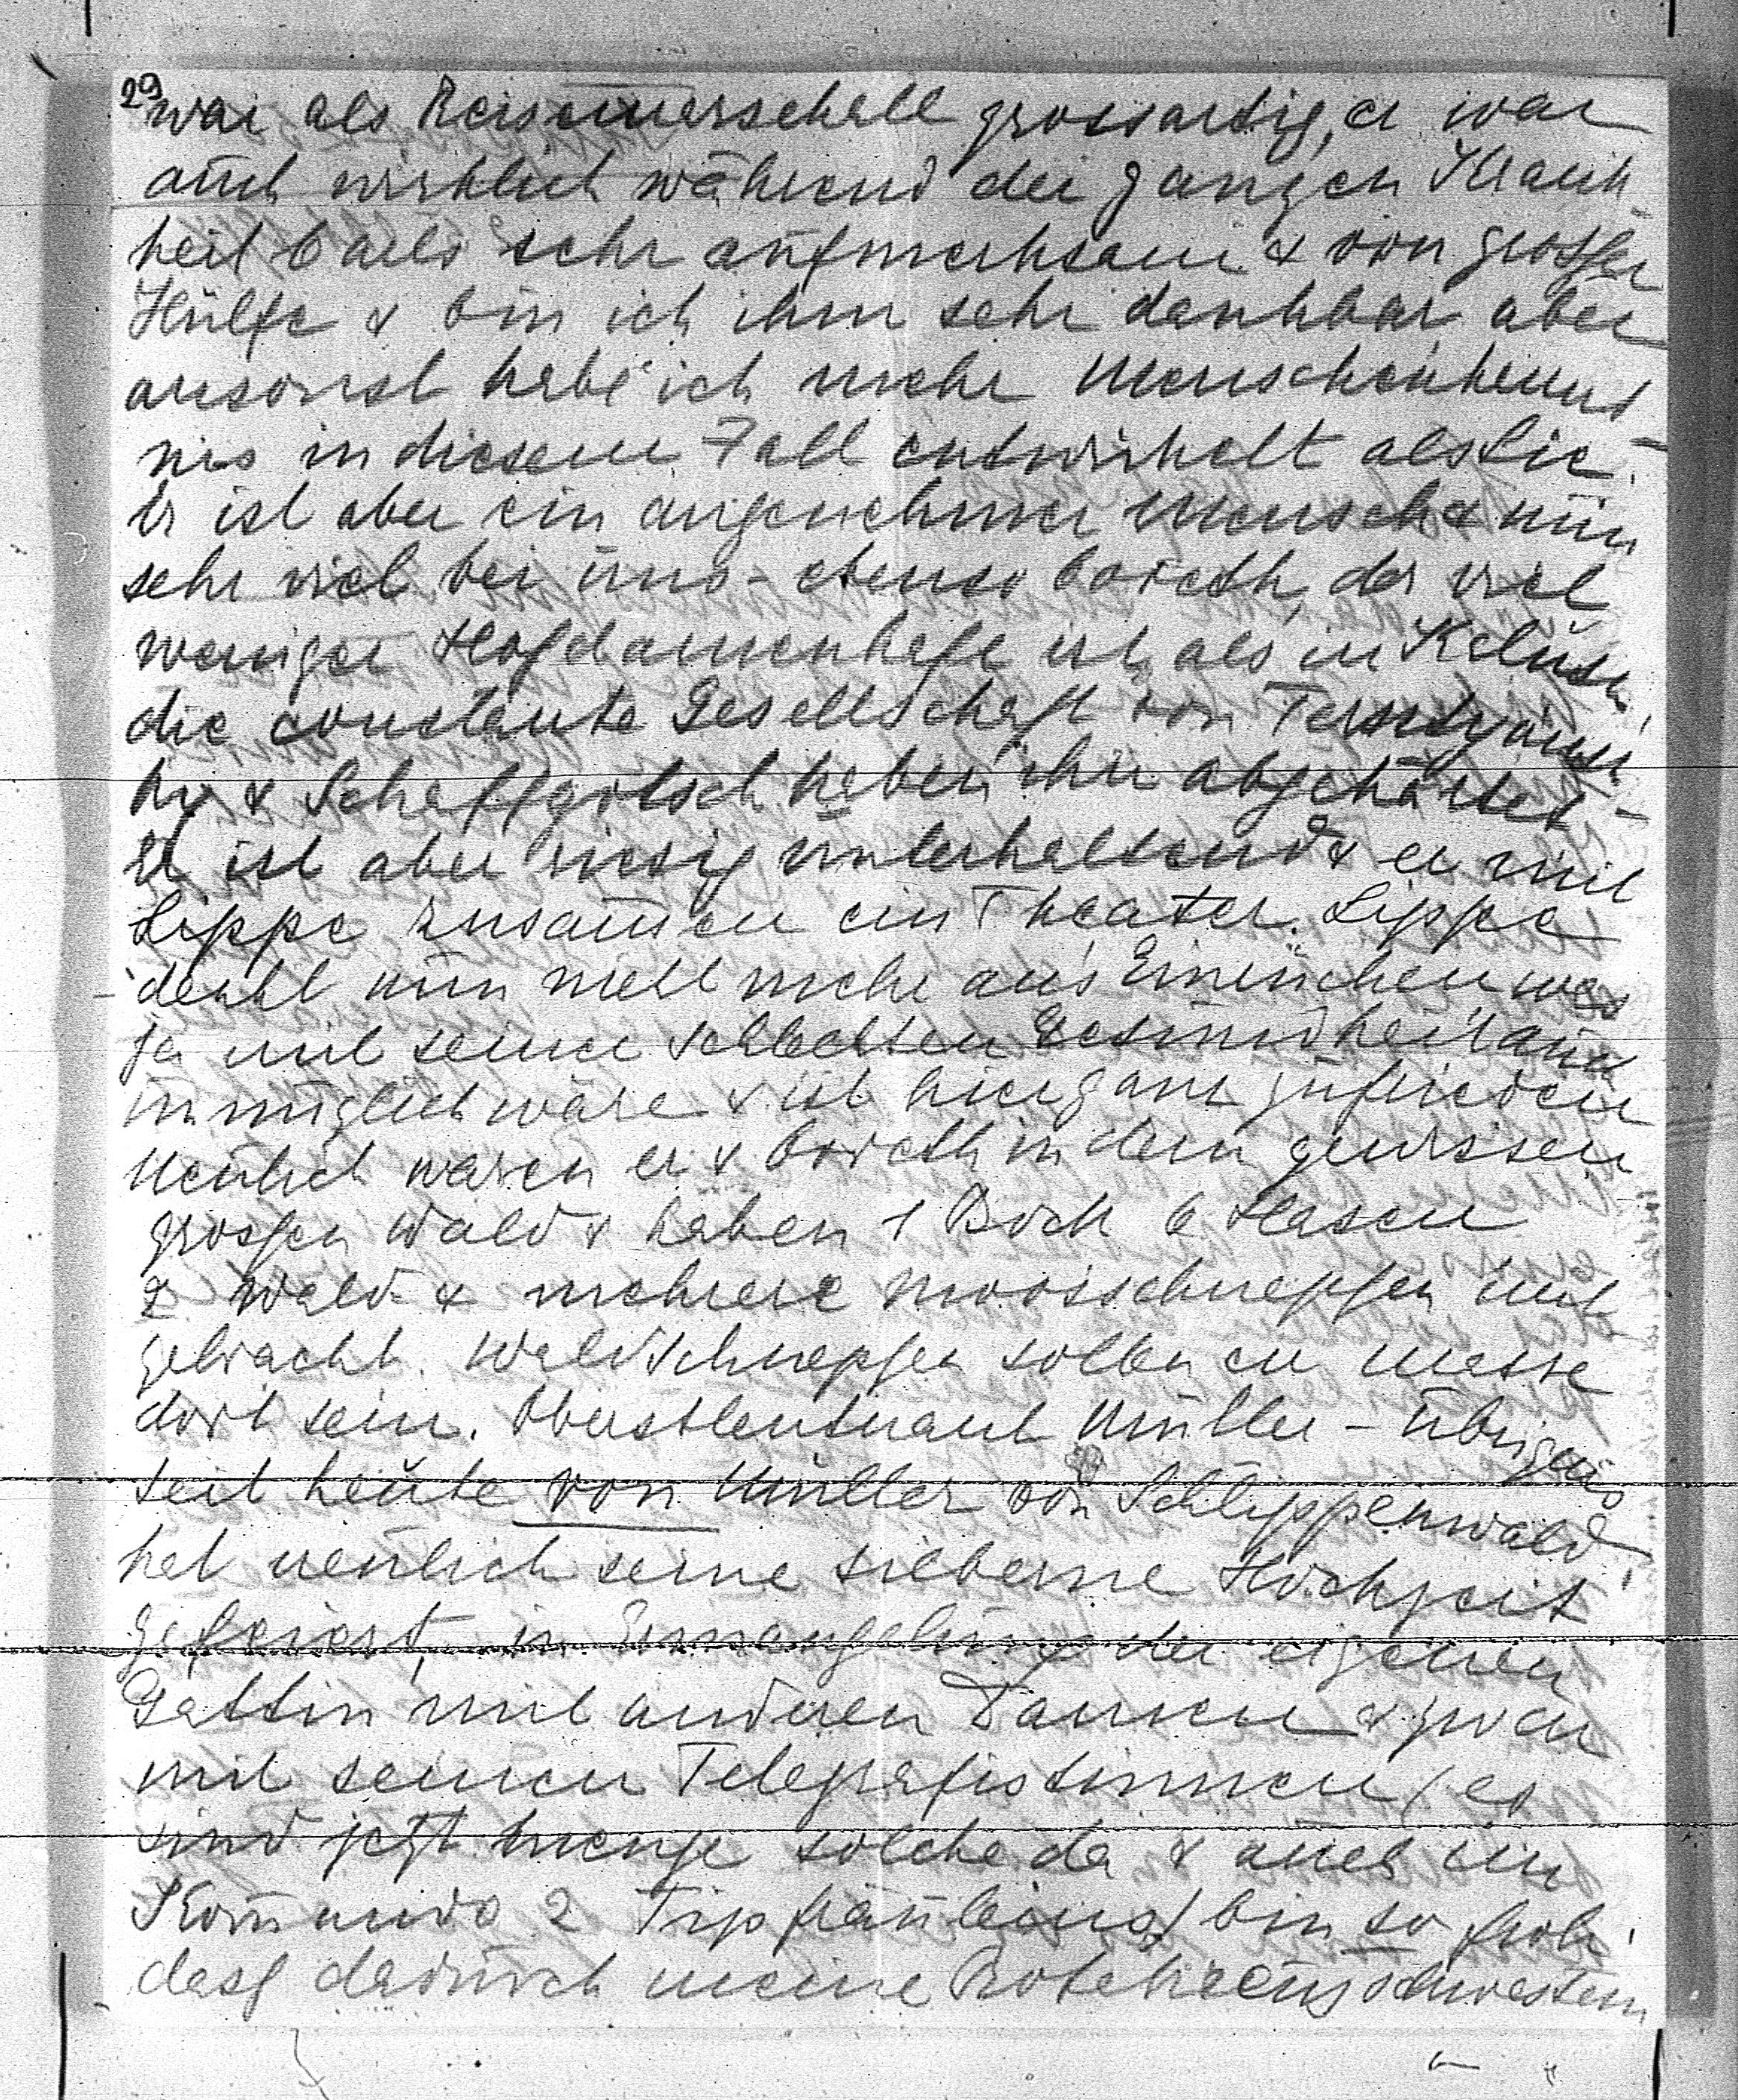 29
war als Reisemarschall grossartig, er war
auch wirklich während der ganzen Krank-
heit Carls sehr aufmerksam & von grosser
Hülfe & bin ich ihm sehr dankbar, aber
ansonst habe ich mehr Menschenkennt-
nis in diesem Fall entwickelt als Sie.
Er ist aber ein angenehmer Mensch & nun
sehr viel bei uns - ebenso Coreth, der viel
weniger Hofdamenhaft ist, als in
die constante Gesellschaft von
ky & Schaffgotsch haben ihn abgehärtet -
Er ist aber riesig unterhaltend & er mit
Lippe zusammen ein Theater. Lippe
denkt nun nicht mehr ans Einrücken was
ja mit seiner schlechten Gesundheit auch
unmöglich wäre & ist hier ganz zufrieden
Neulich waren er & Coreth in dem gewissen
grossen Wald & haben 1 Bock 6 Hasen
2 Wald- & mehrere Moosschnepfen mit-
gebracht. Waldschnepfen sollen en masse
dort sein. Oberstleutnant Müller - übrigens
seit heute von Müller von Schlippenwald
hat neulich seine silberne Hochzeit
gefeiert, in Ermangelung der eigenen
Gattin mit anderen Damen & zwar
mit seinen Telegrafistinnen / es
sind jetzt menge solche da & auch im
Kommando 2 Tippfräuleins / bin so froh,
dass dadurch meine Rotekreuzschwestern